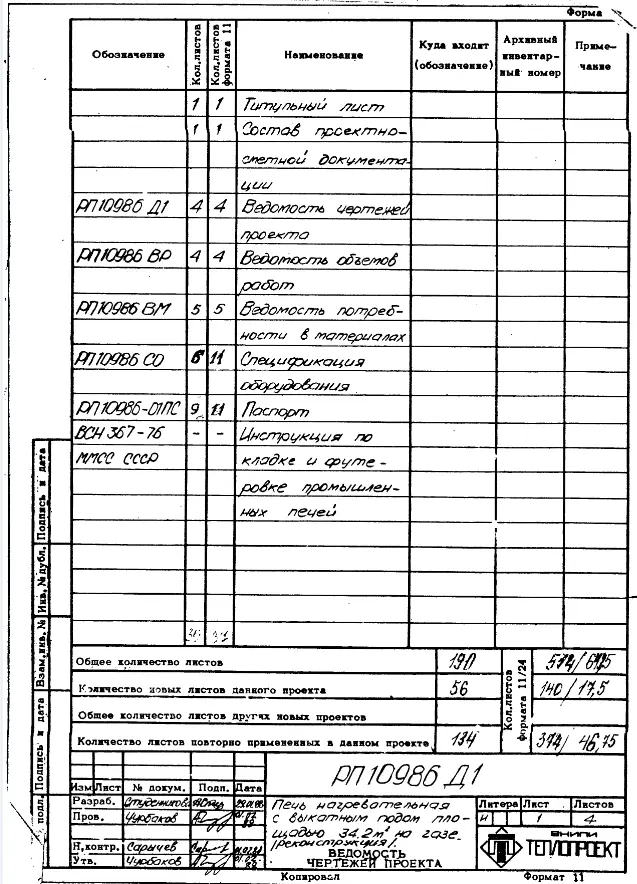 Форма
Обозначение Кол.листов Кол.листов формата 11 Наименование Куда входит (обозначение) Архивный инвентарный номер Примечание
1 1 Титульный лист
1 1 Состав проектно-
сметной документа-
ции
РП10986 Д1 4 4 Ведомость чертежей
проекта
РП10986 ВР 4 4 Ведомость объемов
работ
РП10986 ВМ 5 5 Ведомость потреб-
ности в материалах
РП10986 СО 6 11 Спецификация
оборудования
РП10986-01ПС 9 11 Паспорт
ВСН 367-76 - - Инструкция по
ММСС СССР кладке и футе-
ровке промышлен-
ных печей
Общее количество листов 190
Количество новых листов данного проекта 56 140/17,5
Общее количество листов других новых проектов
Количество листов повторно примененных в данном проекте 134 374/46,75
Кол.листов формата 11/24
Подпись и дата
Инв.№дубл.
Взам.инв.№
Подпись и дата
подл.
РП10986 Д1
Изм Лист № докум. Подп. Дата
Разраб. Студеникова
Пров. Чурбаков
Н.контр. Сарычев
Утв. Чурбаков
Печь нагревательная
с выкатным подом пло-
щадью 34.2м² на газе
/реконструкция/.
ВЕДОМОСТЬ
ЧЕРТЕЖЕЙ ПРОЕКТА
Литера Лист Листов
1 4
ВНИПИ
ТЕПЛОПРОЕКТ
Копировал Формат 11